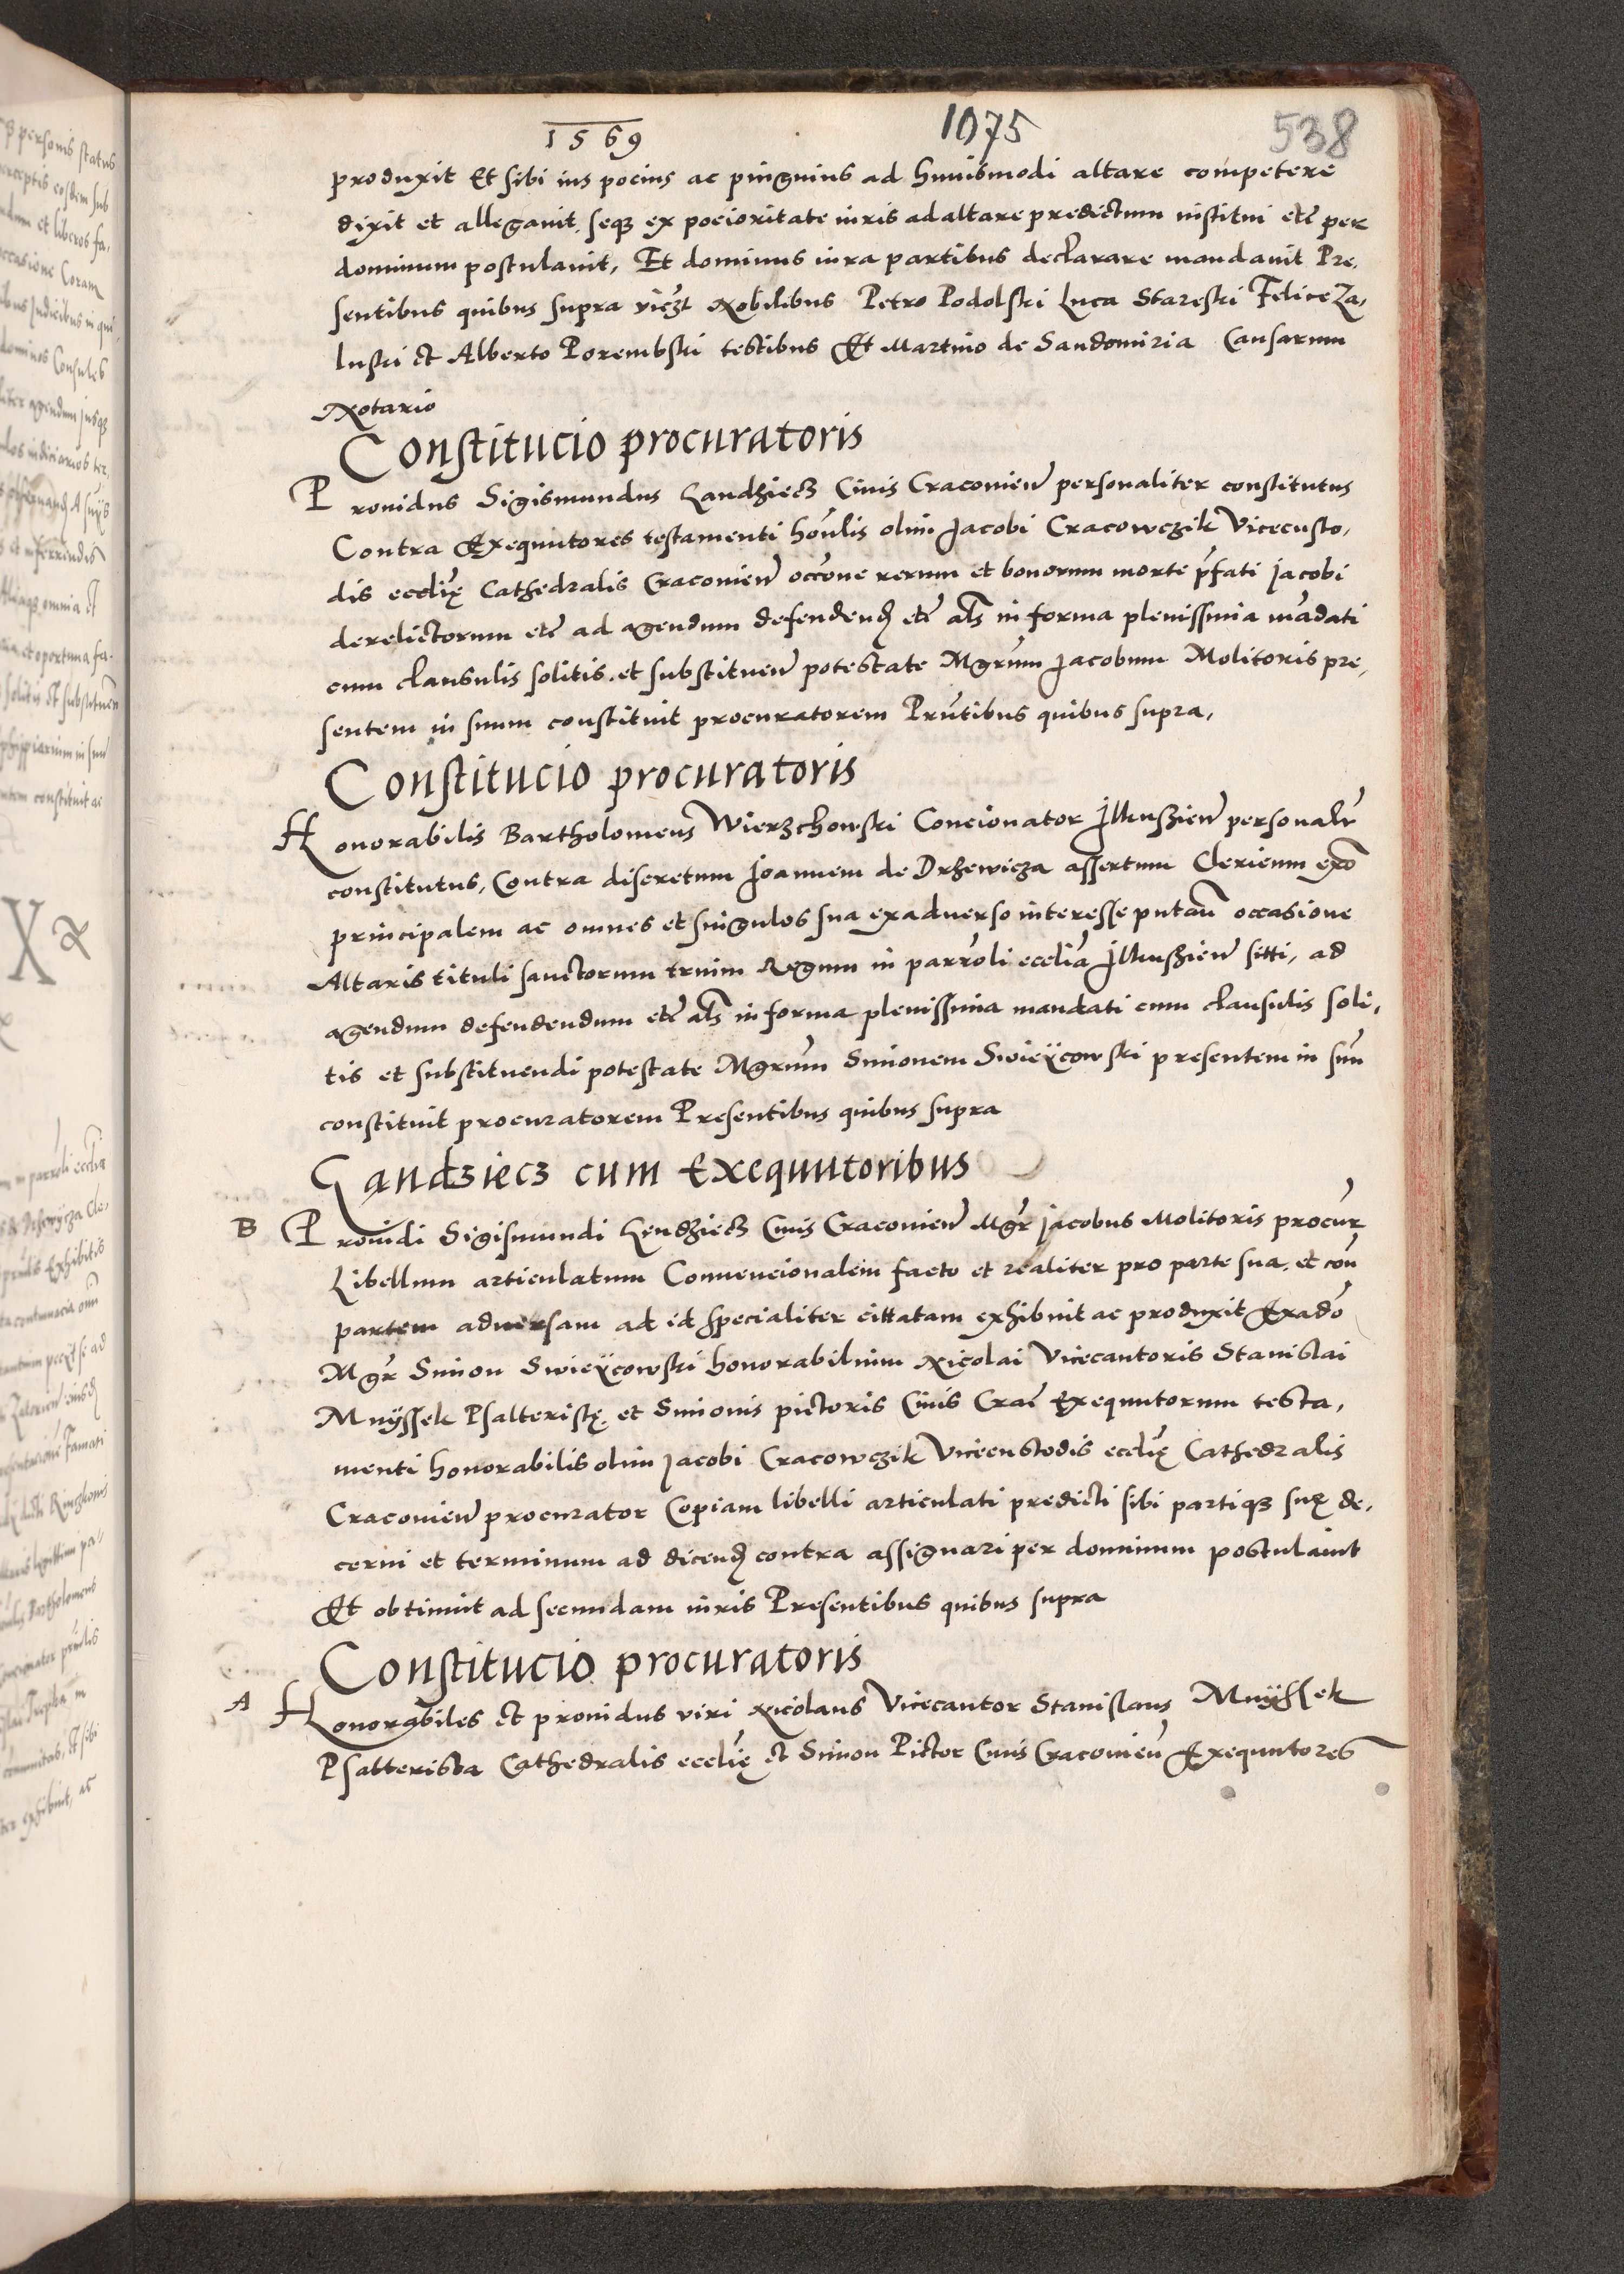 1569 1075 538
produxit Et sibi ius pocius ac pinguius ad huiusmodi altare competere
dixit et allegauit, seq3 ex pocioritate iuris ad altare predictum institui etc̄ per
dominum postulauit, Et dominus iura partibus declarare mandauit Pre,
sentibus quibus supra vicz̄t Nobilibus Petro Podolski Luca Stareski Felice Za,
luski et Alberto Porembski testibus Et Martino de Sandomiria Causarum
Notario
Constitucio procuratoris
Prouidus Sigismundus Handziecz Ciuis Cracouien̄ personaliter constitutus
Contra Exequutores testamenti hon̄lis olim Jacobi Cracowczik Vicecusto,
dis ecclię̄ Cathedralis Cracouien̄ occōne rerum et bonorum morte p̄fati Jacobi
derelictorum etc̄ ad agendum defendend̄ etc̄ al̄s in forma plenissima mādati
cum clausulis solitis et substituen̄ potestate Mgr̄um Jacobum Molitoris pre,
sentem in suum constituit procuratorem Prn̄tibus quibus supra,
Constitucio procuratoris
Honorabilis Bartholomeus Wierzchowski Concionator Jlkuszien̄ personalr̄
constitutus, Contra discretum Joannem de Drzewicza assertum Clericum exō
principalem ac omnes et singulos sua ex aduerso interesse putan̄ occasione
Altaris tituli sanctorum trium Regum in parroli̅ ecclia̅ Jlkuszien̄ sitti, ad
agendum defendendum etc̄ al̄s in forma plenissima mandati cum clausulis soli,
tis et substituendi potestate Mgr̄um Simonem Swieÿcowski presentem in suū
constituit procuratorem Presentibus quibus supra
Gandziecz cum Exequutoribus
B Prouidi Sigismundi Hendziecz Ciuis Cracouien̄ Mgr̄ Jacobus Molitoris procur̄
Libellum articulatum Conuencionalem facto et realiter pro parte sua, et con̄
partem aduersam ad id specialiter cittatam exhibuit ac produxit Exadō
Mgr̄ Simon Swieÿcowski honorabilium Nicolai Vicecantoris Stanislai
Muÿssek Psalteristę, et Simonis pictoris Ciuis Crac̄ Exequutorum testa,
menti honorabilis olim Jacobi Cracowczik Vicecustodis ecclię̄ Cathedralis
Cracouien̄ procurator Copiam libelli articulati predicti sibi partiq3 suę de,
cerni et terminum ad dicend̄ contra assignari per dominum postulauit
Et obtinuit ad secundam iuris Presentibus quibus supra
Constitucio procuratoris
A Honorabiles et prouidus viri Nicolaus Vicecantor Stanislaus Muÿssek
Psalterista Cathedralis ecclię̄ et Simon Pictor Ciuis Cracouien̄ Exequutores